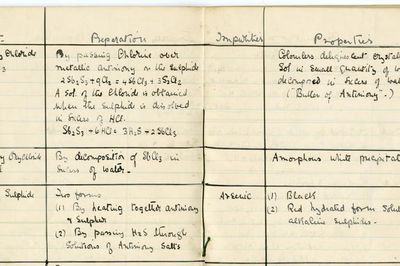 Preparation Impurities Properties
Chloride
By passing Chlorine over
metallic antimony or the Sulphide
2Sb2S3 + 9Cl2 = 4SbCl3 + 3S2Cl2
A Sol. of this Chloride is obtained
when the Sulphide is dissolved
in Excess of HCl.
Sb2S3 + 6HCl = 3H2S + 2SbCl3
Colourless deliquescent crystal
Sol in Small Quantity of
decomposed in Excess of
("Butter of Antimony".)
Oxychloride
By decomposition of SbCl3 in
Excess of water.
Amorphous white precipitate
Sulphide
Two forms
(1) By heating together antimony
& Sulphur
(2) By passing H2S through
Solutions of Antimony Salts
Arsenic
(1) Black
(2) Red hydrated form Solub
alkaline Sulphides.